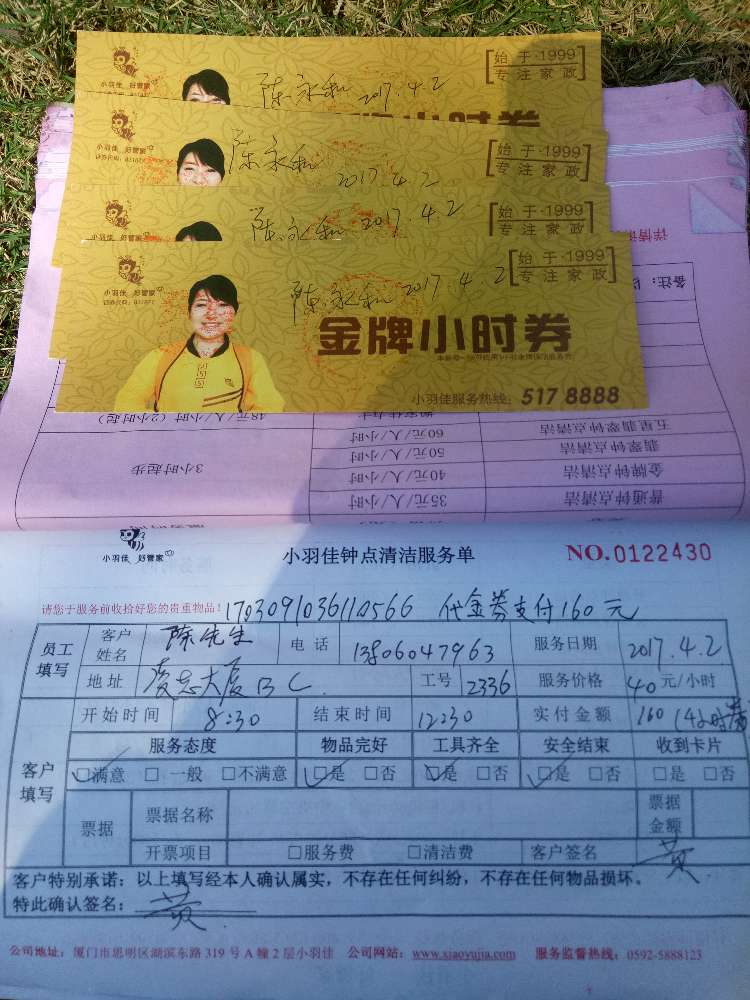 小羽佳 好管家
陈永和 2017.4.2
始于·1999
专注家政
小羽佳 好管家
陈永和 2017.4.2
始于·1999
专注家政
陈永和 2017.4.2
始于·1999
专注家政
小羽佳 好管家
陈永和 2017.4.2
始于·1999
专注家政
金牌小时券
小羽佳服务热线: 517 8888
48元/人/小时(2小时起)
五星翡翠钟点清洁 60元/人/小时
翡翠钟点清洁 50元/人/小时
金牌钟点清洁 40元/人/小时
普通钟点清洁 35元/人/小时
3小时起步
小羽佳 好管家
小羽佳钟点清洁服务单 NO.0122430
请您于服务前收拾好您的贵重物品! 1703091036110566 代金券支付160元
员工填写 客户姓名 陈先生 电话 13806047963 服务日期 2017.4.2
地址 凌志大厦BC 工号 2336 服务价格 40元/小时
开始时间 8:30 结束时间 12:30 实付金额 160
客户填写 服务态度 物品完好 工具齐全 安全结束 收到卡片
□满意 □一般 □不满意 □是 □否 □是 □否 □是 □否 □是 □否
票据 票据名称 票据金额
开票项目 □服务费 □清洁费 客户签名 黄
客户特别承诺:以上填写经本人确认属实,不存在任何纠纷,不存在任何物品损坏。
特此确认签名: 黄
公司地址:厦门市思明区湖滨东路319号A幢2层小羽佳 公司网站:www.xiaoyujia.com 服务监督热线:0592-5888123